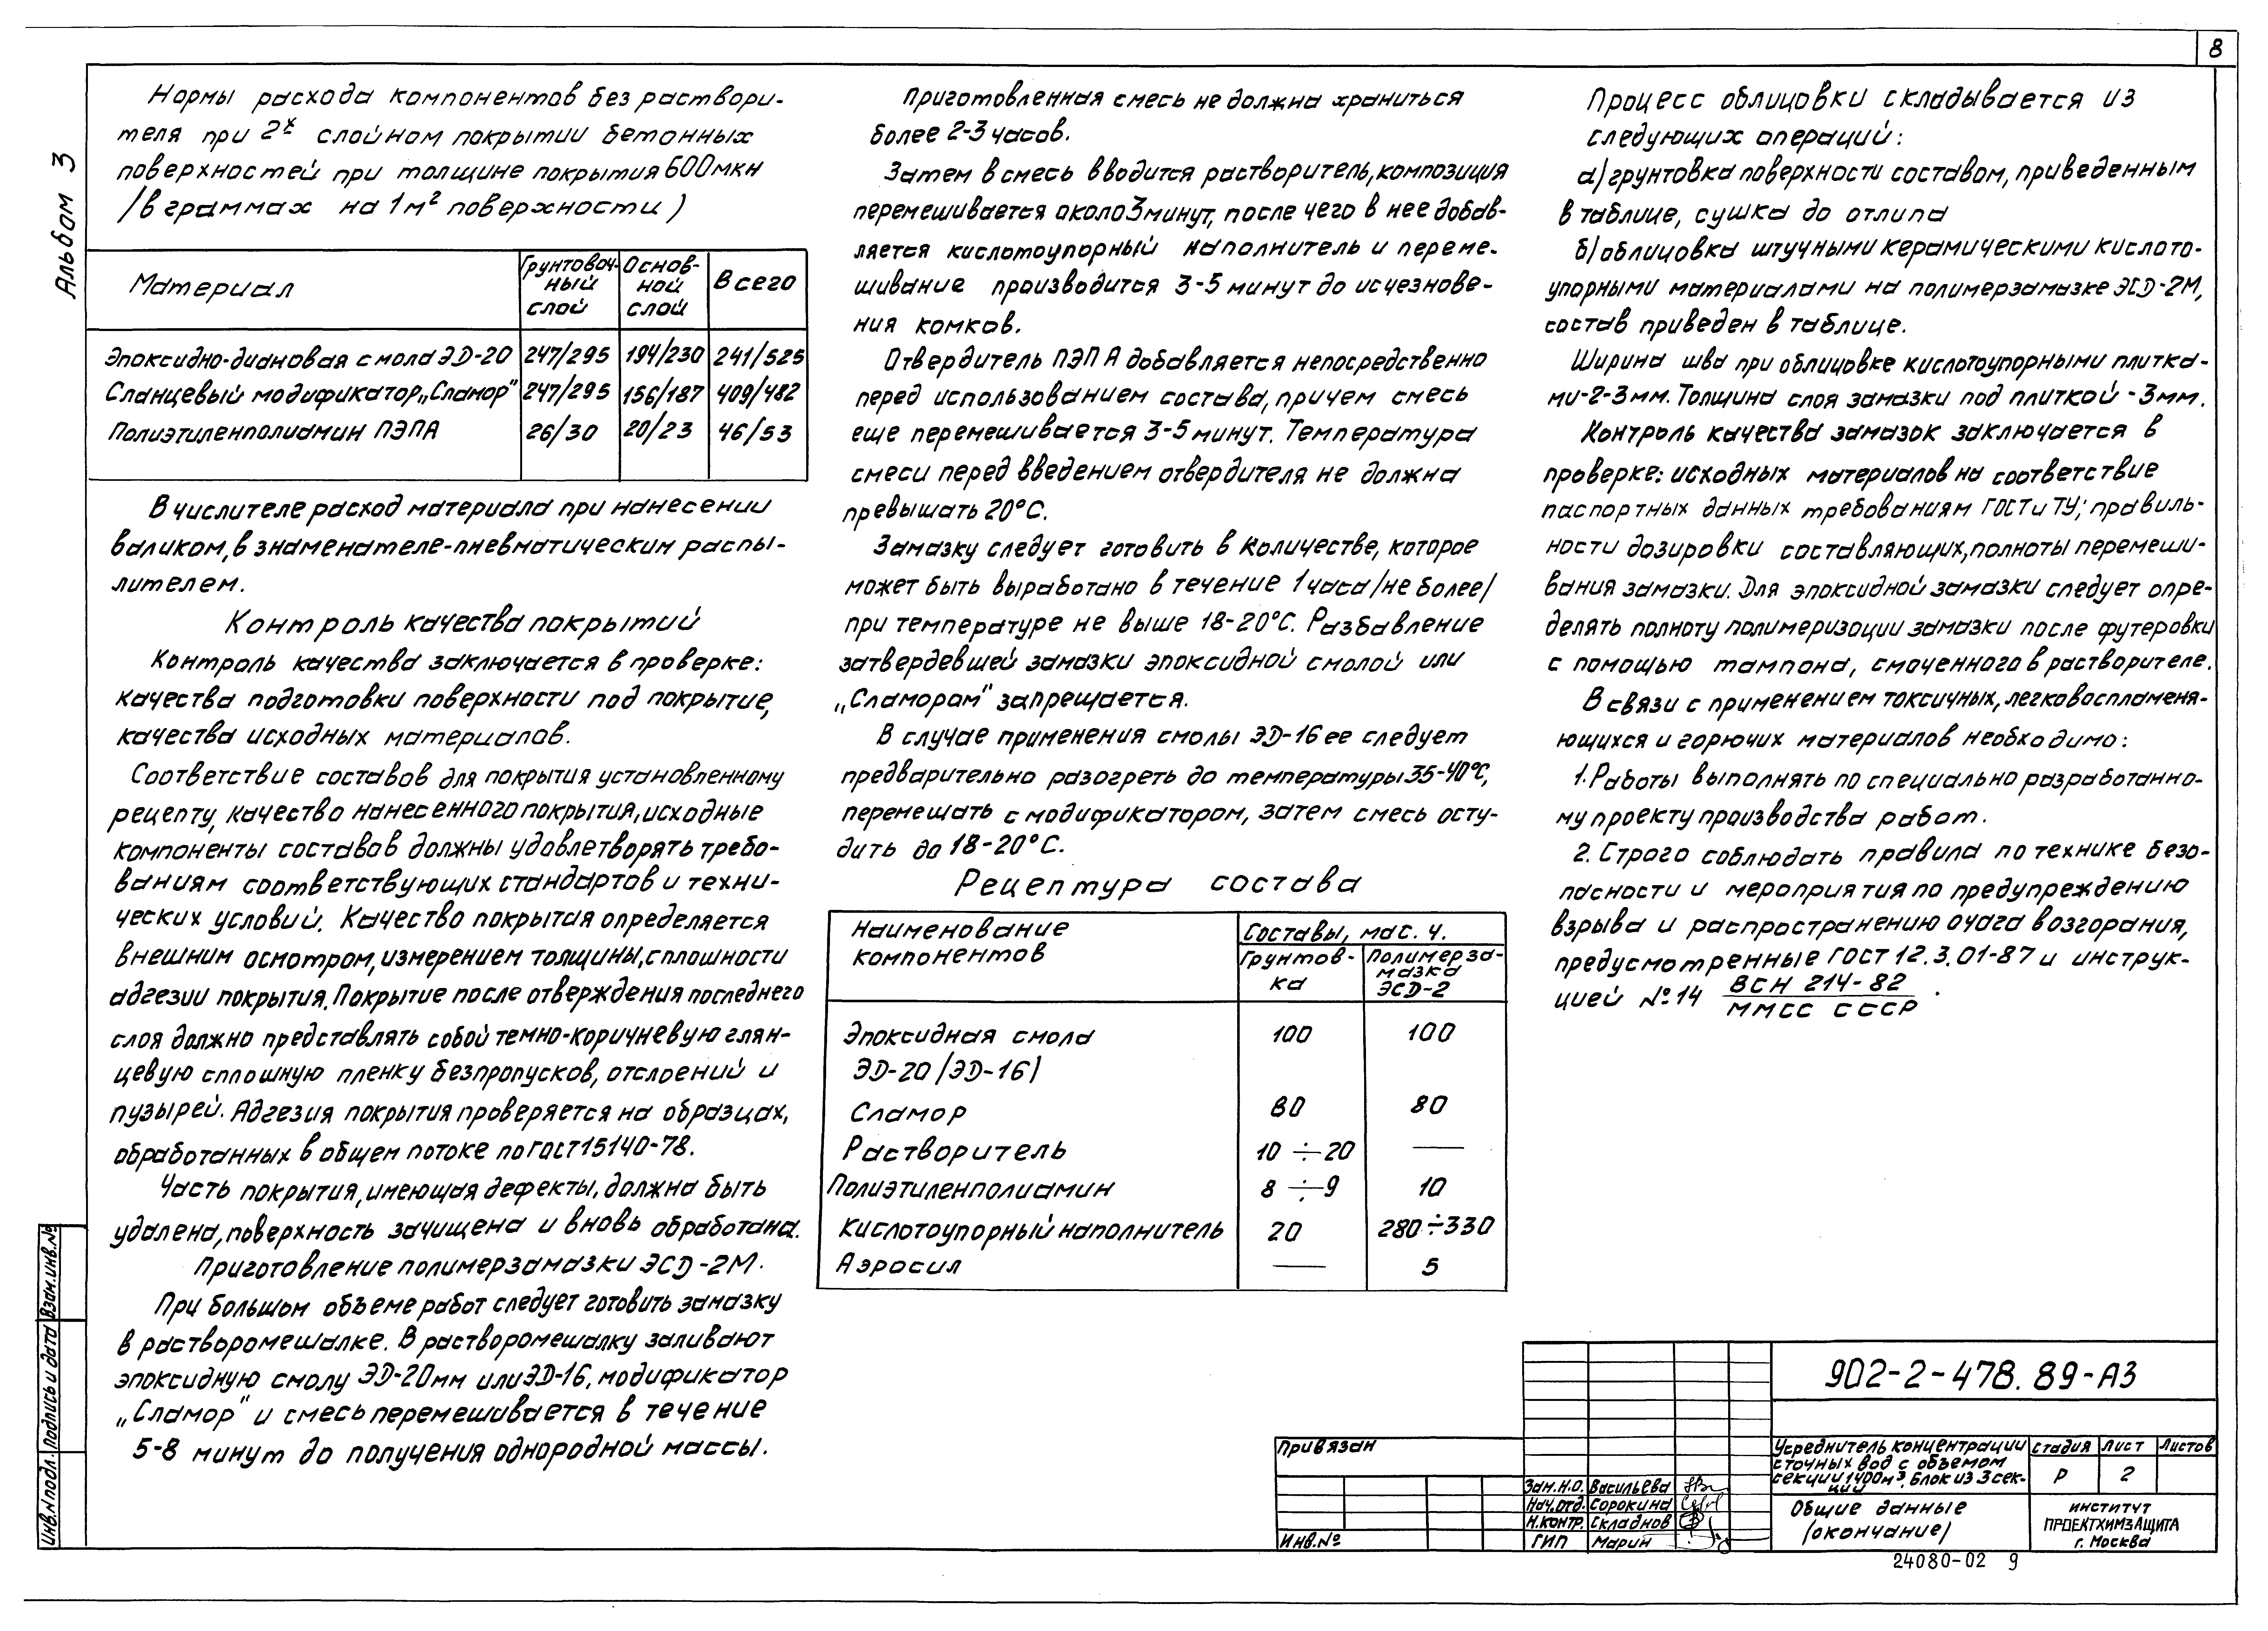 8
Альбом 3
Нормы расхода компонентов без раствори-
теля при 2х слойном покрытии бетонных
поверхностей при толщине покрытия 600мкн
/в граммах на 1м² поверхности)
Материал | Грунтовоч-ный слой | Основ-ной слой | Всего
Эпоксидно-диановая смола ЭД-20 | 247/295 | 194/230 | 241/525
Сланцевый модификатор „Сламор" | 247/295 | 156/187 | 409/482
Полиэтиленполиамин ПЭПА | 26/30 | 20/23 | 46/53
В числителе расход материала при нанесении
валиком, в знаменателе-пневматическим распы-
лителем.
Контроль качества покрытий
Контроль качества заключается в проверке:
качества подготовки поверхности под покрытие,
качества исходных материалов.
Соответствие составов для покрытия установленному
рецепту, качество нанесенного покрытия, исходные
компоненты составов должны удовлетворять требо-
ваниям соответствующих стандартов и техни-
ческих условий. Качество покрытия определяется
внешним осмотром, измерением толщины, сплошности
адгезии покрытия. Покрытие после отверждения последнего
слоя должно представлять собой темно-коричневую глян-
цевую сплошную пленку без пропусков, отслоений и
пузырей. Адгезия покрытия проверяется на образцах,
обработанных в общем потоке по ГОСТ 15140-78.
Часть покрытия, имеющая дефекты, должна быть
удалена, поверхность зачищена и вновь обработана.
Приготовление полимерзамазки ЭСД-2М.
При большом объеме работ следует готовить замазку
в растворомешалке. В растворомешалку заливают
эпоксидную смолу ЭД-20мм или ЭД-16, модификатор
„Сламор" и смесь перемешивается в течение
5-8 минут до получения однородной массы.
Приготовленная смесь не должна храниться
более 2-3 часов.
Затем в смесь вводится растворитель, композиция
перемешивается около 3 минут, после чего в нее добав-
ляется кислотоупорный наполнитель и переме-
шивание производится 3-5 минут до исчезнове-
ния комков.
Отвердитель ПЭПА добавляется непосредственно
перед использованием состава, причем смесь
еще перемешивается 3-5 минут. Температура
смеси перед введением отвердителя не должна
превышать 20°С.
Замазку следует готовить в количестве, которое
может быть выработано в течение 1 часа /не более/
при температуре не выше 18-20°С. Разбавление
затвердевшей замазки эпоксидной смолой или
„Сламором" запрещается.
В случае применения смолы ЭД-16 ее следует
предварительно разогреть до температуры 35-40°С,
перемешать с модификатором, затем смесь осту-
дить до 18-20°С.
Рецептура состава
Наименование компонентов | Составы, мас. ч.
Грунтов-ка | Полимерза-мазка ЭСД-2
Эпоксидная смола | 100 | 100
ЭД-20 /ЭД-16)
Сламор | 80 | 80
Растворитель | 10 ÷ 20 | —
Полиэтиленполиамин | 8 ÷ 9 | 10
Кислотоупорный наполнитель | 20 | 280÷330
Аэросил | — | 5
Процесс облицовки складывается из
следующих операций:
а) грунтовка поверхности составом, приведенным
в таблице, сушка до отлипа
б) облицовка штучными керамическими кислото-
упорными материалами на полимерзамазке ЭСД-2М,
состав приведен в таблице.
Ширина шва при облицовке кислотоупорными плитка-
ми-2-3мм. Толщина слоя замазки под плиткой -3мм.
Контроль качества замазок заключается в
проверке: исходных материалов на соответствие
паспортных данных требованиям ГОСТ и ТУ; правиль-
ности дозировки составляющих, полноты перемеши-
вания замазки. Для эпоксидной замазки следует опре-
делять полноту полимеризации замазки после футеровки
с помощью тампона, смоченного в растворителе.
В связи с применением токсичных, легковоспламеня-
ющихся и горючих материалов необходимо:
1. Работы выполнять по специально разработанно-
му проекту производства работ.
2. Строго соблюдать правила по технике безо-
пасности и мероприятия по предупреждению
взрыва и распространению очага возгорания,
предусмотренные ГОСТ 12.3.01-87 и инструк-
цией №14 ВСН 214-82 / ММСС СССР.
902-2-478.89-АЗ
Привязан
Инв.№
Зам.Н.О. Васильева
Нач.отд. Сорокина
Н.контр. Складнов
ГИП Марин
Усреднитель концентрации
сточных вод с объемом
секции 1400м³. Блок из 3 сек-
ций
Стадия | Лист | Листов
Р | 2
Общие данные
(окончание)
ИНСТИТУТ
ПРОЕКТХИМЗАЩИТА
г. Москва
24080-02 9
Взам.инв.№
Подпись и дата
Инв.№подл.